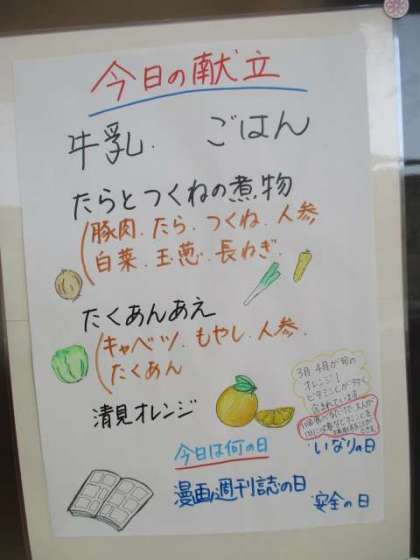 今日の献立
牛乳. ごはん
たらとつくねの煮物
(豚肉.たら.つくね.人参
白菜.玉葱.長ねぎ.
たくあんあえ
(キャベツ.もやし.人参.
たくあん
清見オレンジ
3月.4月が旬の
オレンジ!
ビタミンCが多く
含まれています
今日は何の日
いなりの日
漫画週刊誌の日
安全の日